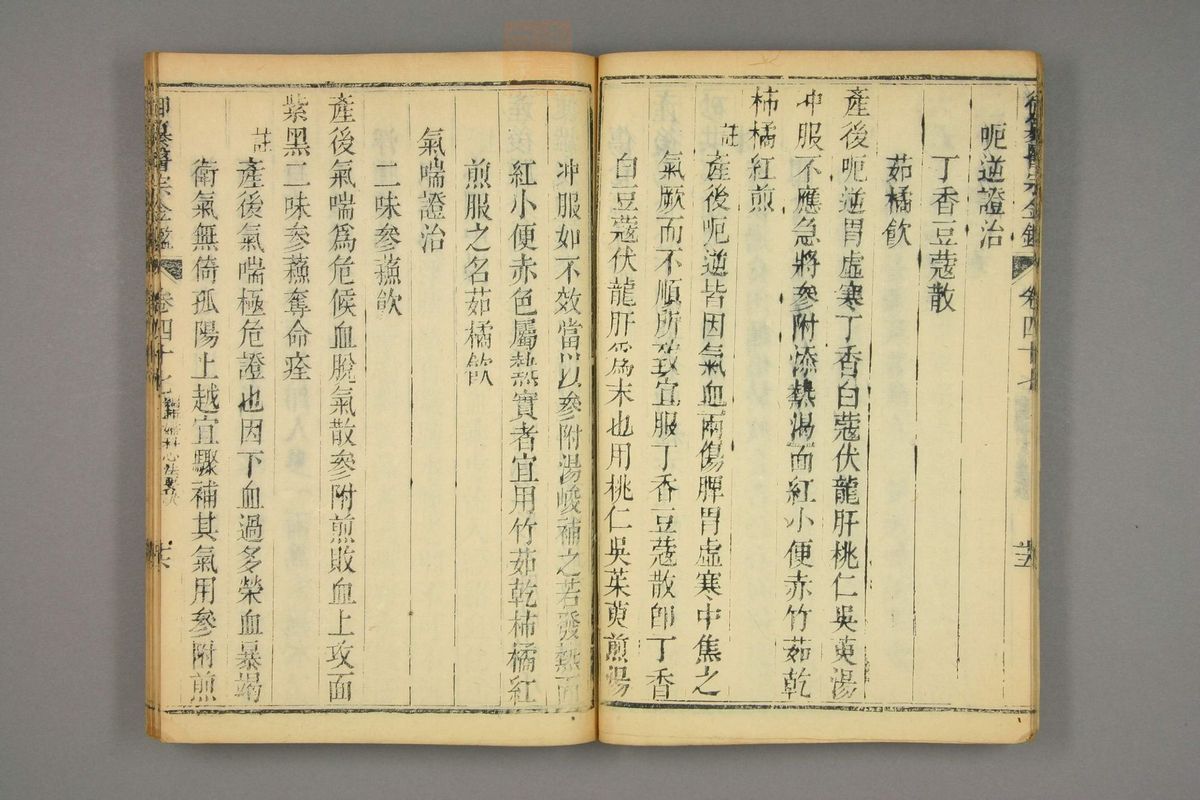 呃逆證治
丁香豆蔻散
茹橘飲
產後呃逆胃虛寒丁香白蔻伏龍肝桃仁吳萸湯
冲服不應急將參附添熱渴面紅小便赤竹茹乾
柿橘紅煎
註
產後呃逆皆因氣血兩傷脾胃虛寒中焦之
氣厥而不順所致宜服丁香豆蔻散卽丁香
白豆蔻伏龍肝爲末也用桃仁吳茱萸煎湯
冲服如不效當以參附湯峻補之若發熱面
紅小便赤色屬熱實者宜用竹茹乾柿橘紅
煎服之名茹橘飲
氣喘證治
二味參蘓飲
產後氣喘爲危候血脫氣散參附煎敗血上攻面
紫黑二味參蘓奪命痊
註
產後氣喘極危證也因下血過多榮血暴竭
衛氣無倚孤陽上越宜驟補其氣用參附煎
御纂醫宗金鑑
卷四十七
編輯婦科心法要訣